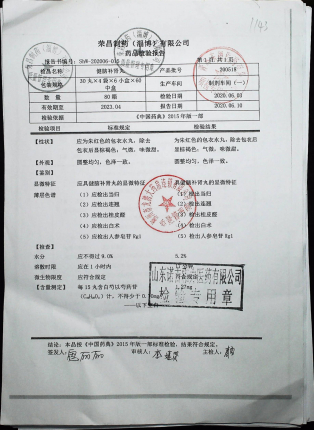 1143
荣昌制药（淄博）有限公司
药品检验报告
报告书编号：SW-202006-0 第 1 页 共 1 页
药品名称 健脑补肾丸 产品批号 200618
包装规格 30 丸×4 袋×6 小盒×60 中盒 生产车间 制剂车间（一）
数 量 80 箱 检验日期 2020.06.03
有效期至 2023.04 报告日期 2020.06.10
检验依据 《中国药典》2015 年版一部
检验项目 标准规定 检验结果
【性状】 应为朱红色的包衣水丸，除去包衣后显棕褐色，气微，味微甜。 为朱红色的包衣水丸，除去包衣后显棕褐色，气微，味微甜。
【外观】 圆整均匀，色泽一致。 圆整均匀，色泽一致。
【鉴别】
显微特征 应具健脑补肾丸的显微特征 具健脑补肾丸的显微特征
薄层色谱 （1）应检出当归 （1）检出当归
（2）应检出连翘 （2）检出连翘
（3）应检出桂皮醛 （3）检出桂皮醛
（4）应检出白术 （4）检出白术
（5）应检出人参皂苷 Rg1 （5）检出人参皂苷 Rg1
【检查】
水分 应不得过 9.0% 5.2%
溶散时限 应在 1 小时内
微生物限度 应符合规定
【含量测定】 每 15 丸含白芍以芍药苷
不得少于 0.70mg
以下空白
山东 医药有限公司
检验专用章
结论：本品按《中国药典》2015 年版一部标准检验，结果符合规定。
签发人： 审核人： 主检人：